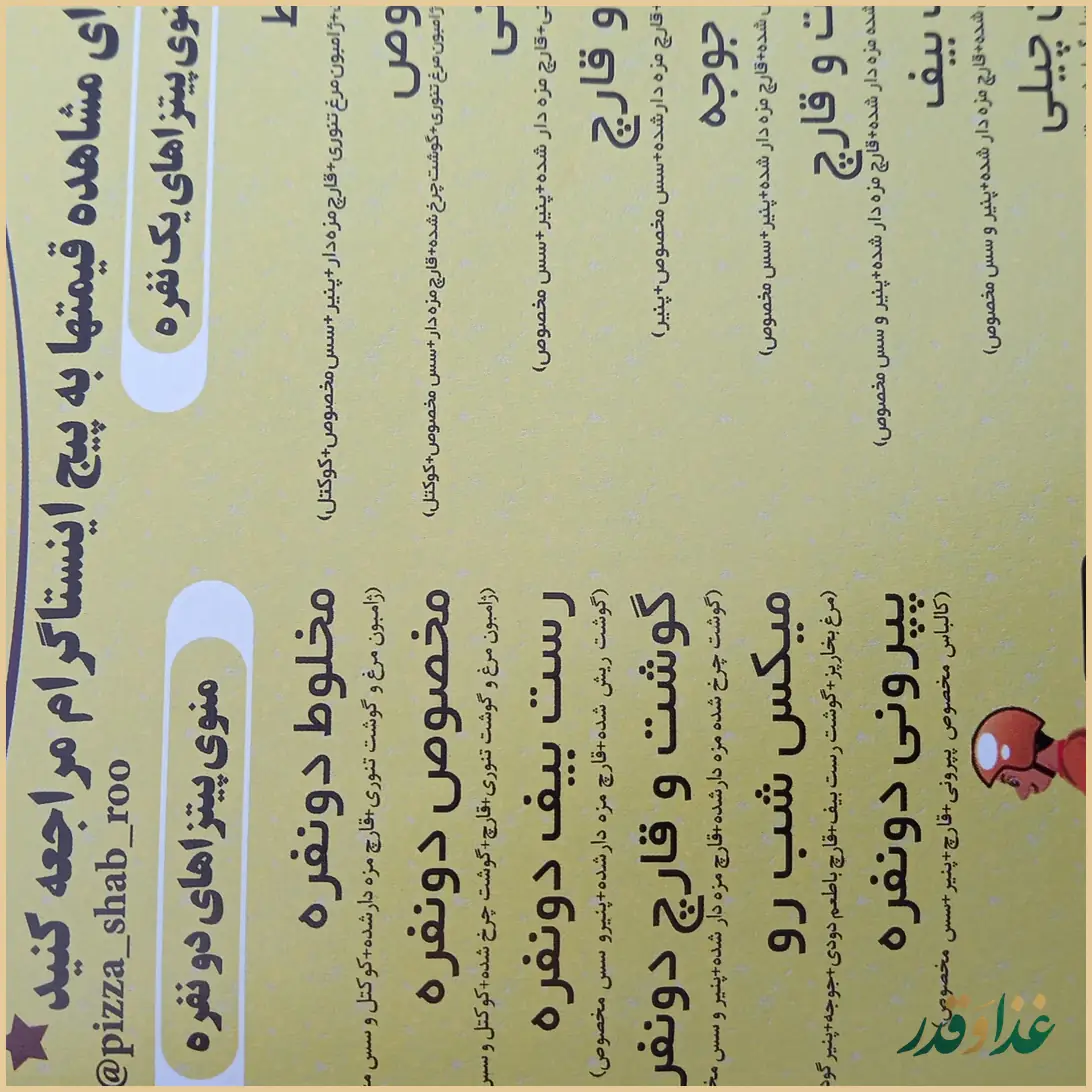 ای مشاهده قیمتها به پیج اینستاگرام مراجعه کنید
@pizza_shab_roo
نوی پیتزاهای یک نفره
ط
+ژامبون مرغ تنوری+قارچ مزه دار+پنیر+سس مخصوص+کوکتل)
وص
ژامبون مرغ تنوری+گوشت چرخ شده+قارچ مزه دار+سس مخصوص+کوکتل)
نی
نی+قارچ مزه دار شده+پنیر+سس مخصوص)
و قارچ
+قارچ مزه دار شده+سس مخصوص+پنیر)
جوجه
شده+قارچ مزه دار شده+پنیر+سس مخصوص)
ت و قارچ
شده مزه دار شده+قارچ مزه دار شده+پنیر و سس مخصوص)
بیف
شده+قارچ مزه دار شده+پنیر و سس مخصوص)
چیلی
منوی پیتزاهای دو نفره
مخلوط دونفره
(ژامبون مرغ و گوشت تنوری+قارچ مزه دار شده+کوکتل و سس م
مخصوص دونفره
(ژامبون مرغ و گوشت تنوری+قارچ+گوشت چرخ شده+کوکتل و سس
رست بیف دونفره
(گوشت ریش شده+قارچ مزه دار شده+پنیرو سس مخصوص)
گوشت و قارچ دونفر
(گوشت چرخ شده مزه دار شده+قارچ مزه دار شده+پنیر و سس مخ
میکس شب رو
(مرغ بخارپز+گوشت رست بیف+قارچ باطعم دودی+جوجه+پنیر گود
پپرونی دونفره
(کالباس مخصوص پپرونی+قارچ+پنیر+سس مخصوص)
غذا و قدر